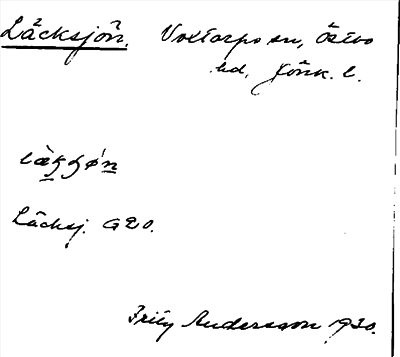 Läcksjön. Voxtorps sn, Östbo
hd, Jönk. l.
Läcksj. G20.
Fritz Andersson 1930.